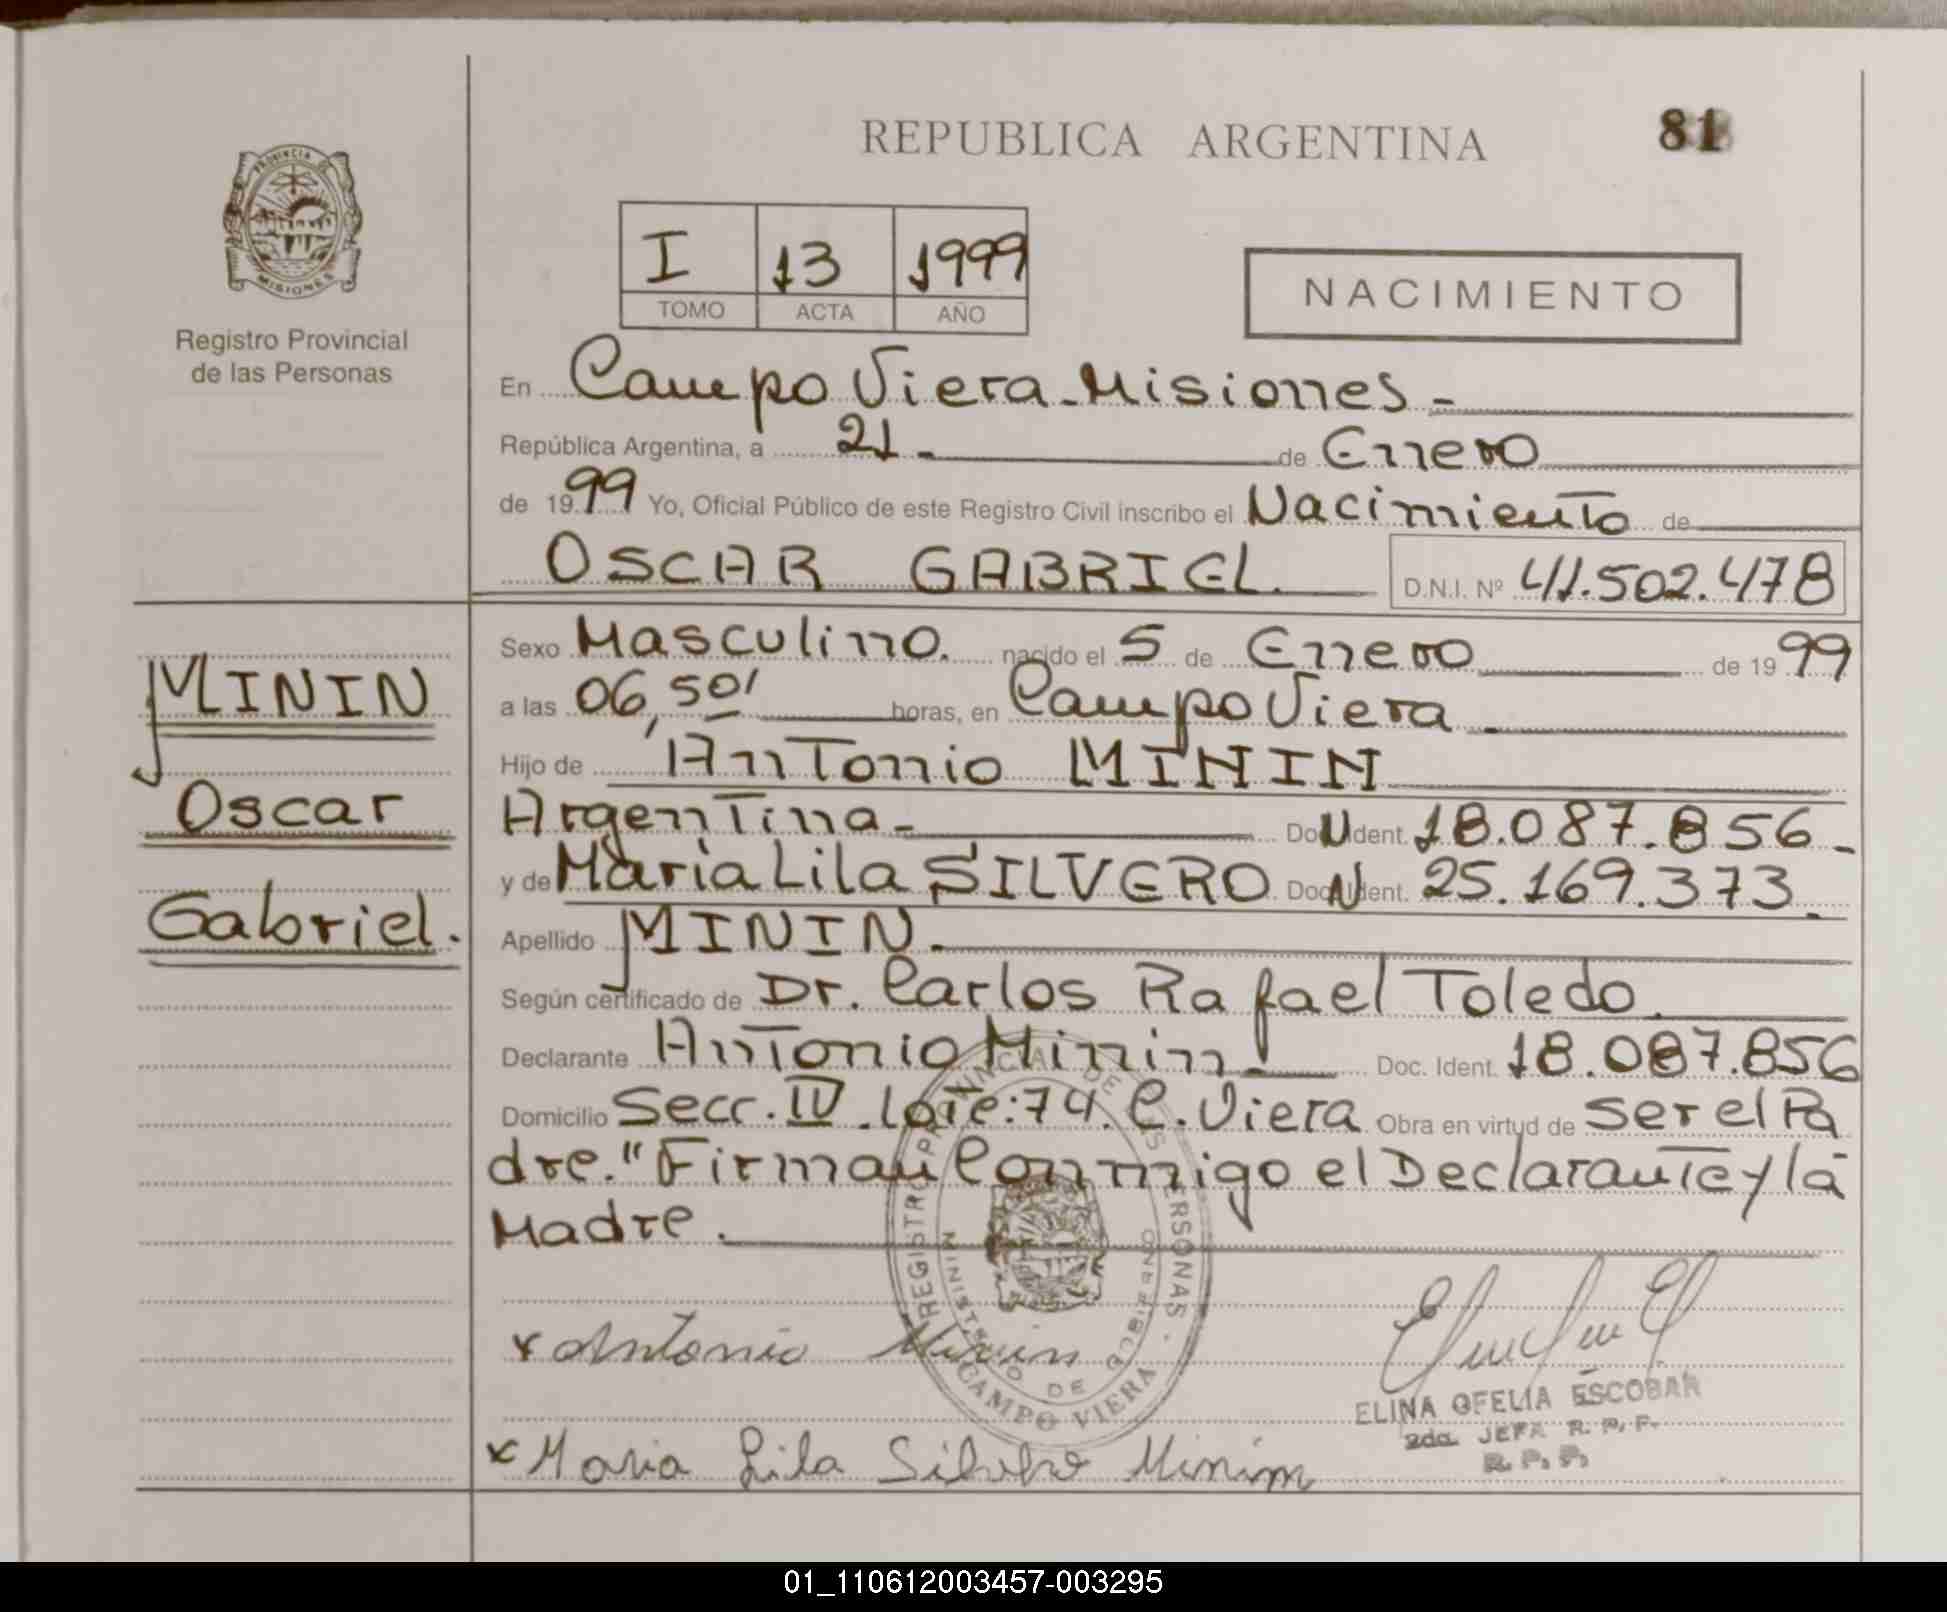 REPUBLICA ARGENTINA
81
PROVINCIA DE
MISIONES
Registro Provincial
de las Personas
I 13 1999
TOMO ACTA AÑO
NACIMIENTO
En Campo Viera-Misiones-
República Argentina, a 21- de Enero
de 1999 Yo, Oficial Público de este Registro Civil inscribo el Nacimiento de
OSCAR GABRIEL. D.N.I. Nº 41.502.478
MININ
Oscar
Gabriel.
Sexo Masculino. nacido el 5 de Enero de 1999
a las 06,50' horas, en Campo Viera
Hijo de Antonio MININ
Argentina- Doc. Ident. 18.087.856-
y de Maria Lila SILVERO Doc. Ident. 25.169.373.
Apellido MININ.
Según certificado de Dr. Carlos Rafael Toledo.
Declarante Antonio Minin- Doc. Ident. 18.087.856
Domicilio Secc. IV. lote:74. C. Viera Obra en virtud de ser el Pa
dre." Firman Conmigo el Declarante y la
Madre.
REGISTRO PROVINCIAL DE LAS PERSONAS - CAMPO VIERA
MINISTERIO DE GOBIERNO
x Antonio Minin
ELINA OFELIA ESCOBAR
2da. JEFA R. P. P.
R. P. P.
x Maria Lila Silvero Minim
01_110612003457-003295